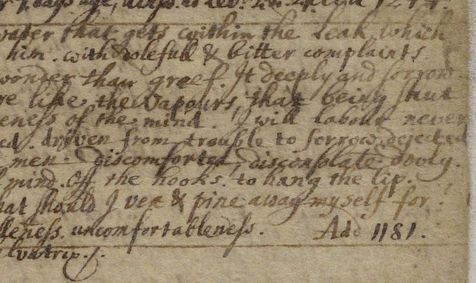 water that gets within the Leak which
him. with dolefull & bitter complaints
wonder than greef. It deeply and sorrow
re like the Vapours, that being shut
eness of the mind. I will labour never
ed. driven from trouble to sorrow. dejected
men discomforted, disconsolate
mind. Off the hooks. to hang the lip.
hat should I vex & pine away my self for.
lleness. uncomfortableness. Add 1181.